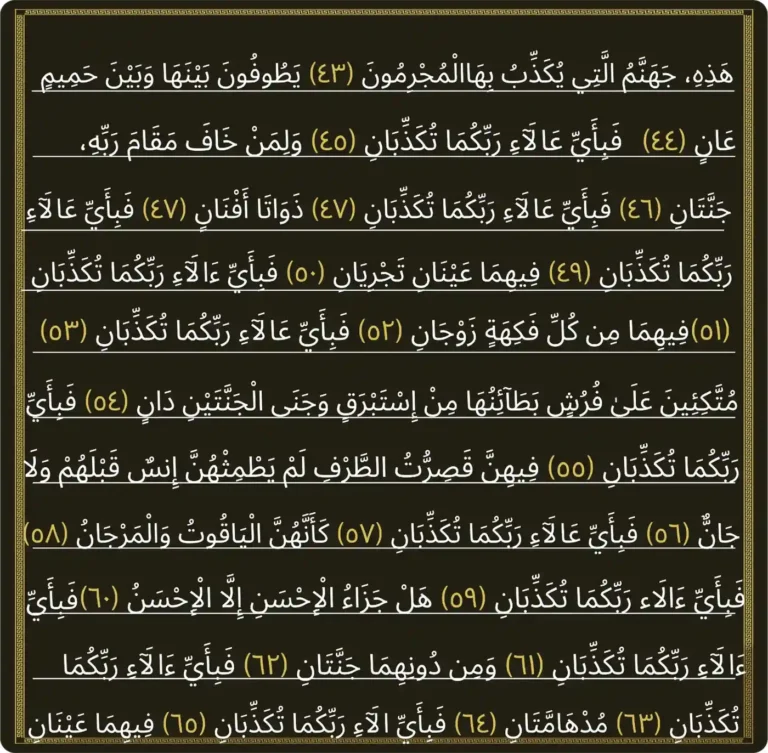 هَذِهِ، جَهَنَّمُ الَّتِي يُكَذِّبُ بِهَاالْمُجْرِمُونَ (٤٣) يَطُوفُونَ بَيْنَهَا وَبَيْنَ حَمِيمٍ
عَانٍ (٤٤) فَبِأَيِّ عَالَآءِ رَبِّكُمَا تُكَذِّبَانِ (٤٥) وَلِمَنْ خَافَ مَقَامَ رَبِّهِ،
جَنَّتَانِ (٤٦) فَبِأَيِّ عَالَآءِ رَبِّكُمَا تُكَذِّبَانِ (٤٧) ذَوَاتَا أَفْنَانٍ (٤٧) فَبِأَيِّ عَالَآءِ
رَبِّكُمَا تُكَذِّبَانِ (٤٩) فِيهِمَا عَيْنَانِ تَجْرِيَانِ (٥٠) فَبِأَيِّ ءَالَآءِ رَبِّكُمَا تُكَذِّبَانِ
(٥١)فِيهِمَا مِن كُلِّ فَكِهَةٍ زَوْجَانِ (٥٢) فَبِأَيِّ عَالَآءِ رَبِّكُمَا تُكَذِّبَانِ (٥٣)
مُتَّكِئِينَ عَلَىٰ فُرُشٍ بَطَآئِنُهَا مِنْ إِسْتَبْرَقٍ وَجَنَى الْجَنَّتَيْنِ دَانٍ (٥٤) فَبِأَيِّ
رَبِّكُمَا تُكَذِّبَانِ (٥٥) فِيهِنَّ قَصِرُّتُ الطَّرْفِ لَمْ يَطْمِثْهُنَّ إِنسٌ قَبْلَهُمْ وَلَا
جَانٌّ (٥٦) فَبِأَيِّ عَالَآءِ رَبِّكُمَا تُكَذِّبَانِ (٥٧) كَأَنَّهُنَّ الْيَاقُوتُ وَالْمَرْجَانُ (٥٨)
فَبِأَيِّ ءَالَاء رَبِّكُمَا تُكَذِّبَانِ (٥٩) هَلْ جَزَاءُ الْإِحْسَنِ إِلَّا الْإِحْسَنُ (٦٠)فَبِأَيِّ
ءَالَآءِ رَبِّكُمَا تُكَذِّبَانِ (٦١) وَمِن دُونِهِمَا جَنَّتَانِ (٦٢) فَبِأَيِّ ءَالَآءِ رَبِّكُمَا
تُكَذِّبَانِ (٦٣) مُدْهَامَّتَانِ (٦٤) فَبِأَيِّ الَآءِ رَبِّكُمَا تُكَذِّبَانِ (٦٥) فِيهِمَا عَيْنَانِ